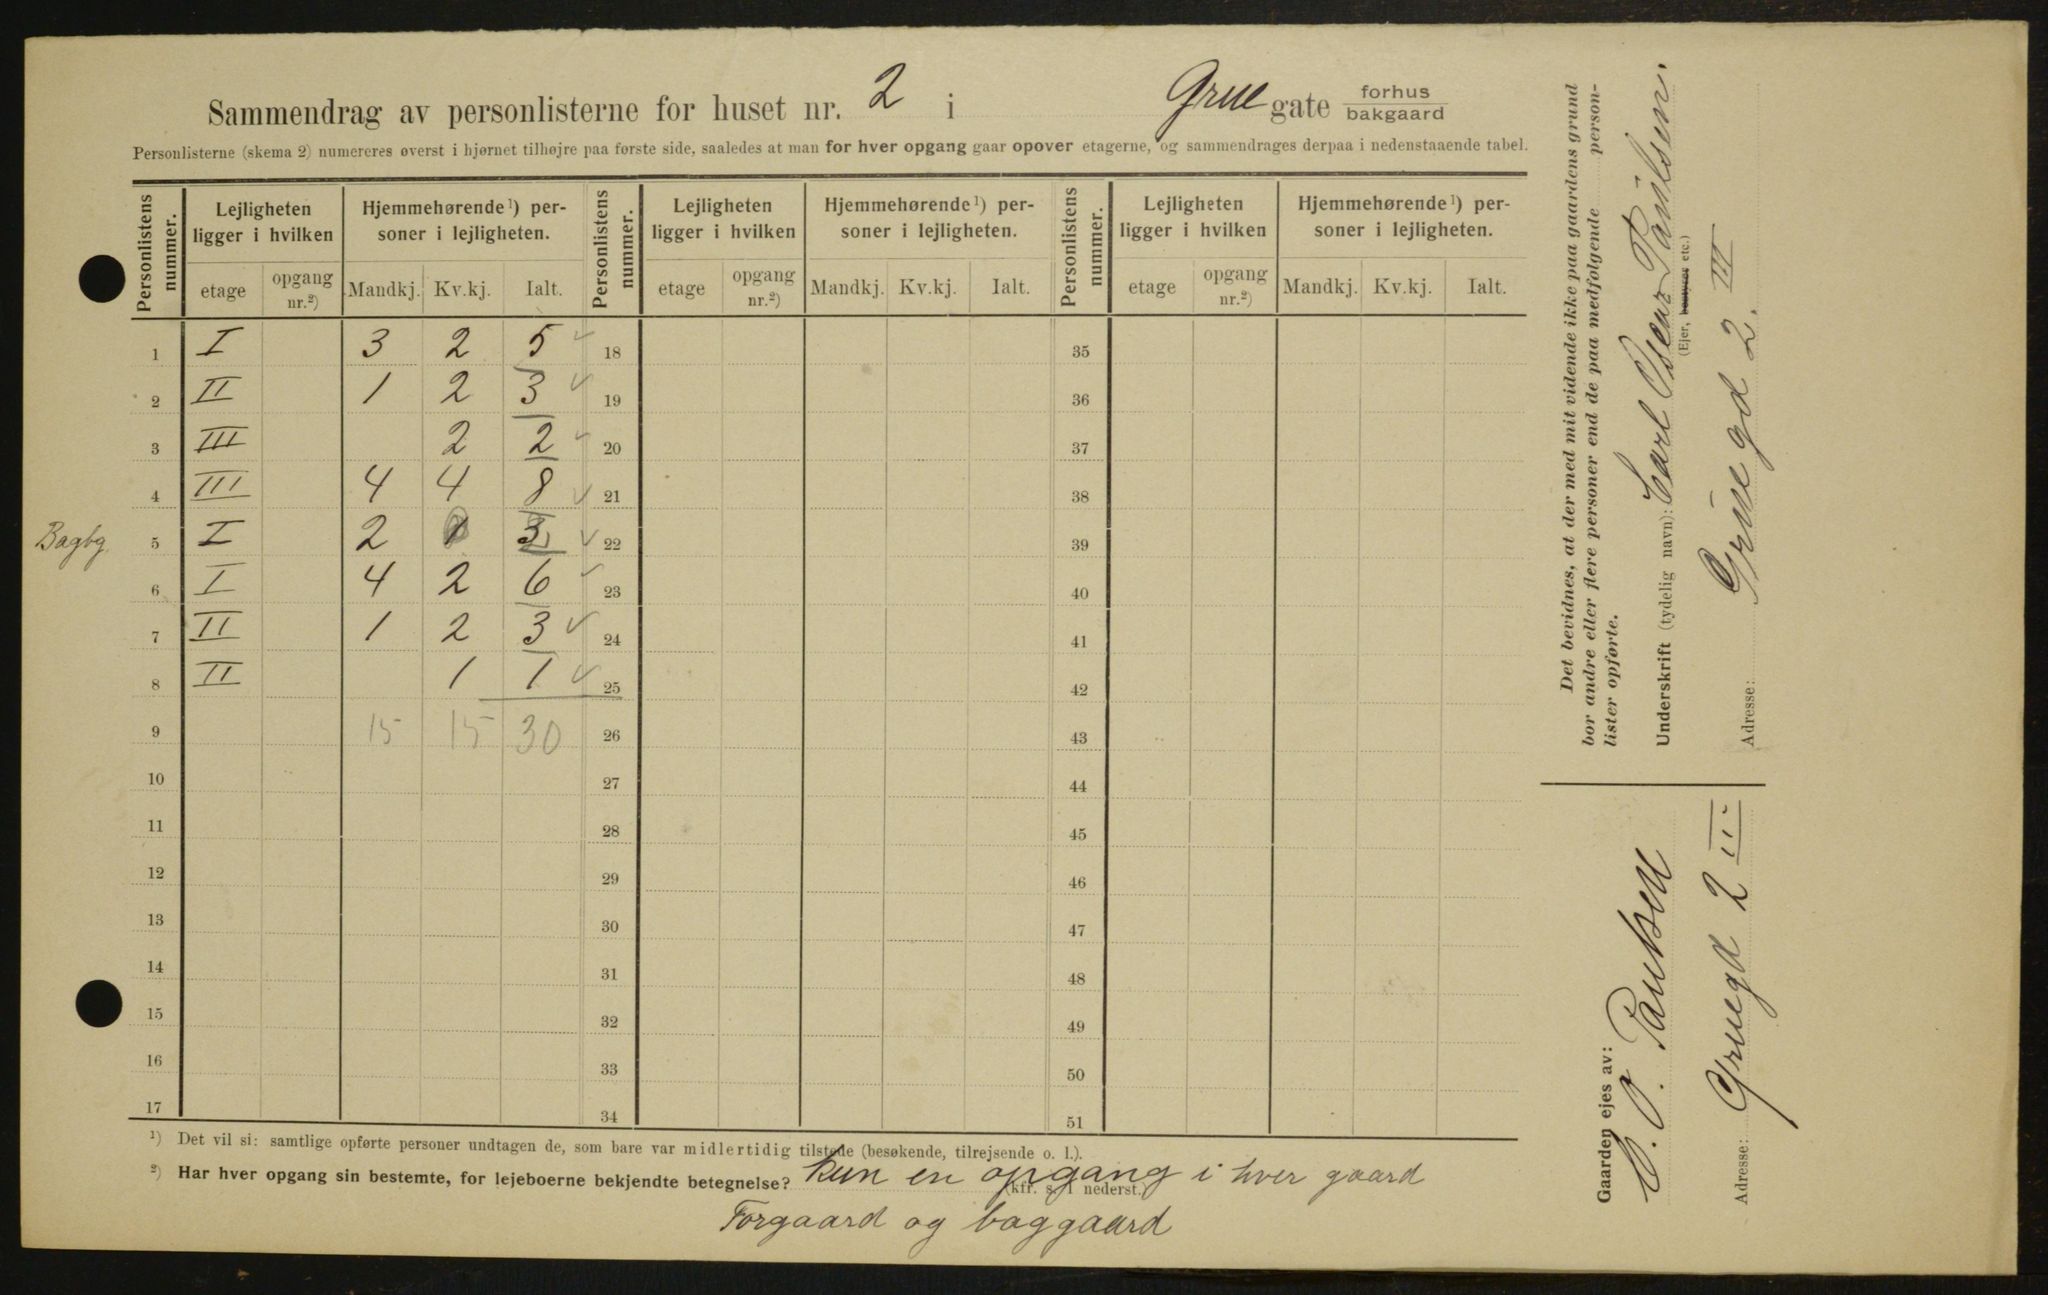 Sammendrag av personlisterne for huset nr. 2 i Grue gate forhus bakgaard
Personlisterne (skema 2) numereres øverst i hjørnet tilhøjre paa første side, saaledes at man for hver opgang gaar opover etagerne, og sammendrages derpaa i nedenstaaende tabel.
Personlistens nummer. Lejligheten ligger i hvilken Hjemmehørende ¹) personer i lejligheten. Personlistens nummer. Lejligheten ligger i hvilken Hjemmehørende ¹) personer i lejligheten. Personlistens nummer. Lejligheten ligger i hvilken Hjemmehørende ¹) personer i lejligheten.
etage opgang nr.²) Mandkj. Kv.kj. Ialt. etage opgang nr.²) Mandkj. Kv.kj. Ialt. etage opgang nr.²) Mandkj. Kv.kj. Ialt.
1 I 3 2 5 ✓ 18 35
2 II 1 2 3 ✓ 19 36
3 III 2 2 ✓ 20 37
4 III 4 4 8 ✓ 21 38
Bagbg. 5 I 2 1 3 ✓ 22 39
6 I 4 2 6 ✓ 23 40
7 II 1 2 3 ✓ 24 41
8 II 1 1 ✓ 25 42
9 15 15 30 26 43
10 27 44
11 28 45
12 29 46
13 30 47
14 31 48
15 32 49
16 33 50
17 34 51
¹) Det vil si: samtlige opførte personer undtagen de, som bare var midlertidig tilstede (besøkende, tilrejsende o. l.).
²) Har hver opgang sin bestemte, for lejeboerne bekjendte betegnelse? kun en opgang i hver gaard
(kfr. s. 1 nederst.)
Forgaard og baggaard
Det bevidnes, at der med mit vidende ikke paa gaardens grund
bor andre eller flere personer end de paa medfølgende person-
lister opførte.
Underskrift (tydelig navn): Carl Oscar Paulsen.
(Ejer, bestyrer etc.)
Adresse: Grue gd 2. III
Gaarden ejes av:
C. O. Paulsen
Adresse: Gruegd 2 III